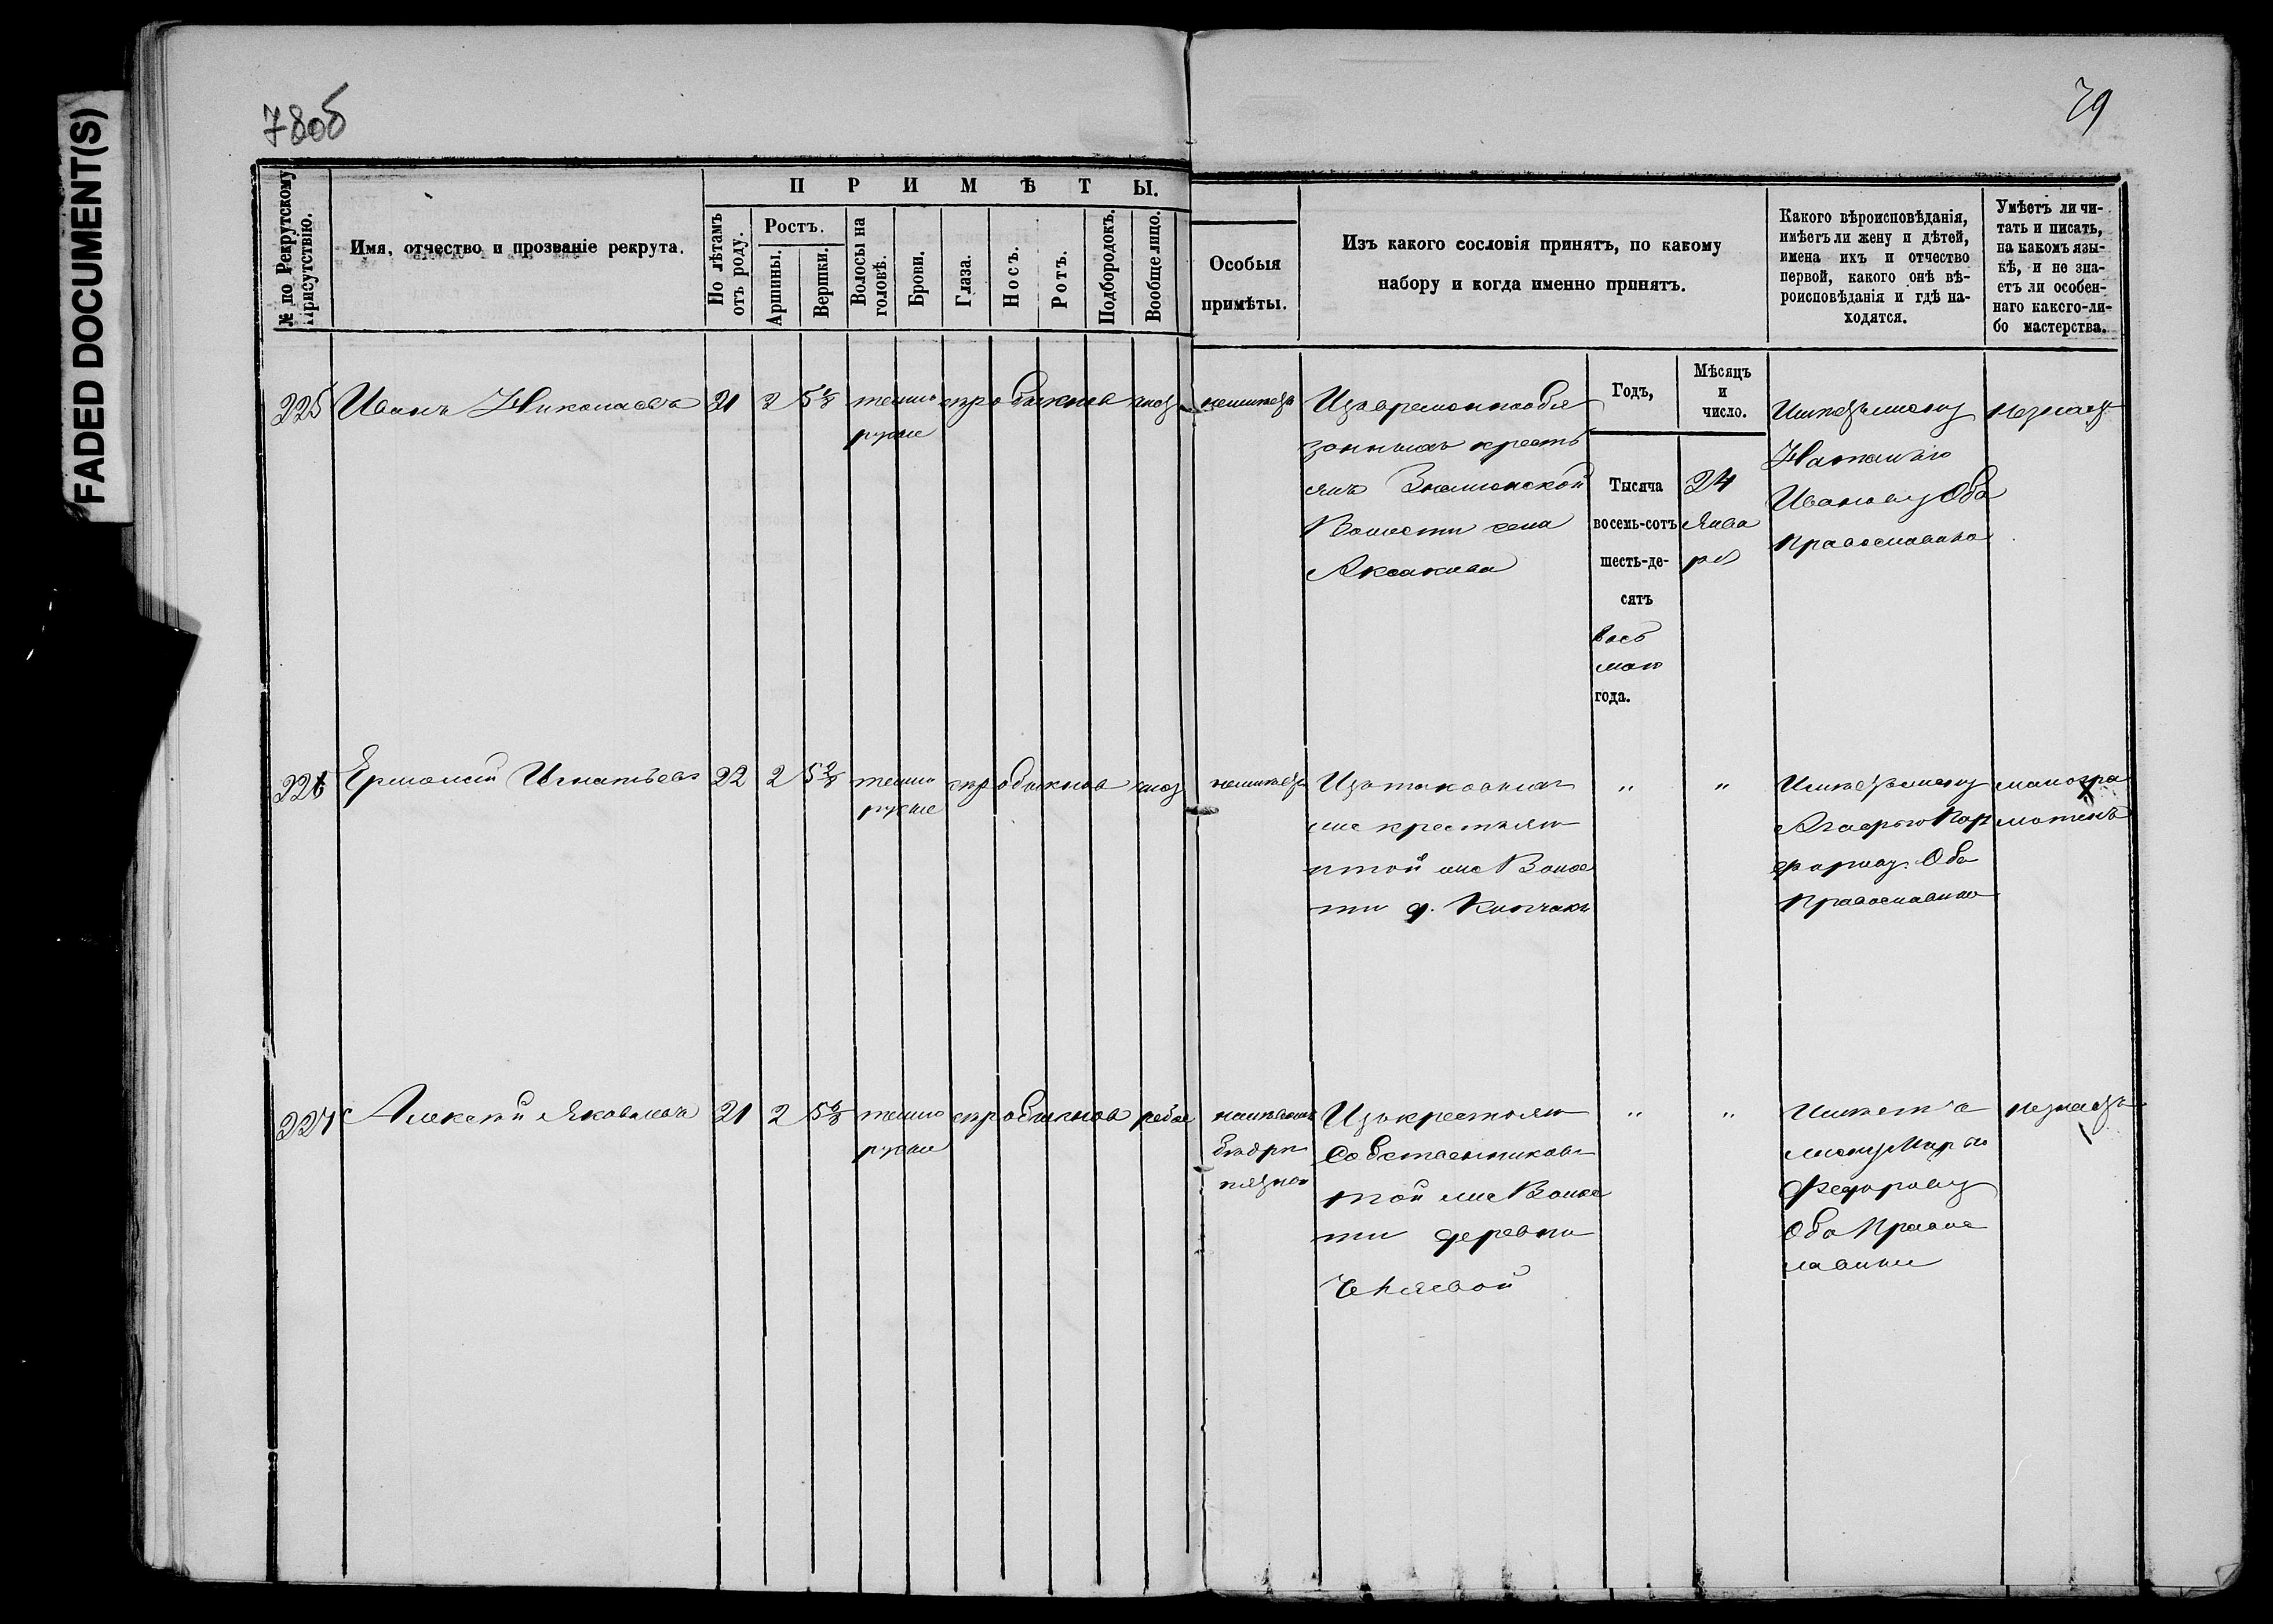 FADED DOCUMENT(S)
78об
79
№ по Рекрутскому Присутствію.
Имя, отчество и прозваніе рекрута.
ПРИМѢТЫ.
По лѣтамъ отъ роду.
Ростъ.
Аршины.
Вершки.
Волосы на головѣ.
Брови.
Глаза.
Носъ.
Ротъ.
Подбородокъ.
Вообще лицо.
Особыя
примѣты.
Изъ какого сословія принятъ, по какому
набору и когда именно принятъ.
Какого вѣроисповѣданія,
имѣетъ ли жену и дѣтей,
имена ихъ и отчество
первой, какого онѣ вѣ-
роисповѣданія и гдѣ на-
ходятся.
Умѣетъ ли чи-
тать и писать,
на какомъ язы-
кѣ, и не зна-
етъ ли особен-
наго какого-ли-
бо мастерства.
Годъ,
Мѣсяцъ
и
число.
225 Иванъ Николаевъ 21 2 5 темно
русые
неимѣетъ
Изъ временнообя
занныхъ кресть
янъ Знаменской
Волости села
Аксакова
Тысяча
восемь-сотъ
шесть-де-
сятъ
вось
маго
года.
24
Янва
ря
Имѣетъ жену
Наталью
Иванову Оба
православного
незнаетъ
226 Игнатьевъ 22 2 5 темно
русые
неимѣетъ
Изъ таковыхъ
же крестьян
той же Волос
ти д. Кипчакъ
" "
Имѣетъ жену
Агафью
Оба
Православного
малогра
мотенъ
227 Алексѣй Яковлевъ 21 2 5 темно русые рябое
на лѣвомъ
бедрѣ
пятно
Изъ крестьян
Собственниковъ
той же Волос
ти деревни
" "
Имѣетъ
жену Марью
Федорову
Оба Правос
лавные
незнаетъ